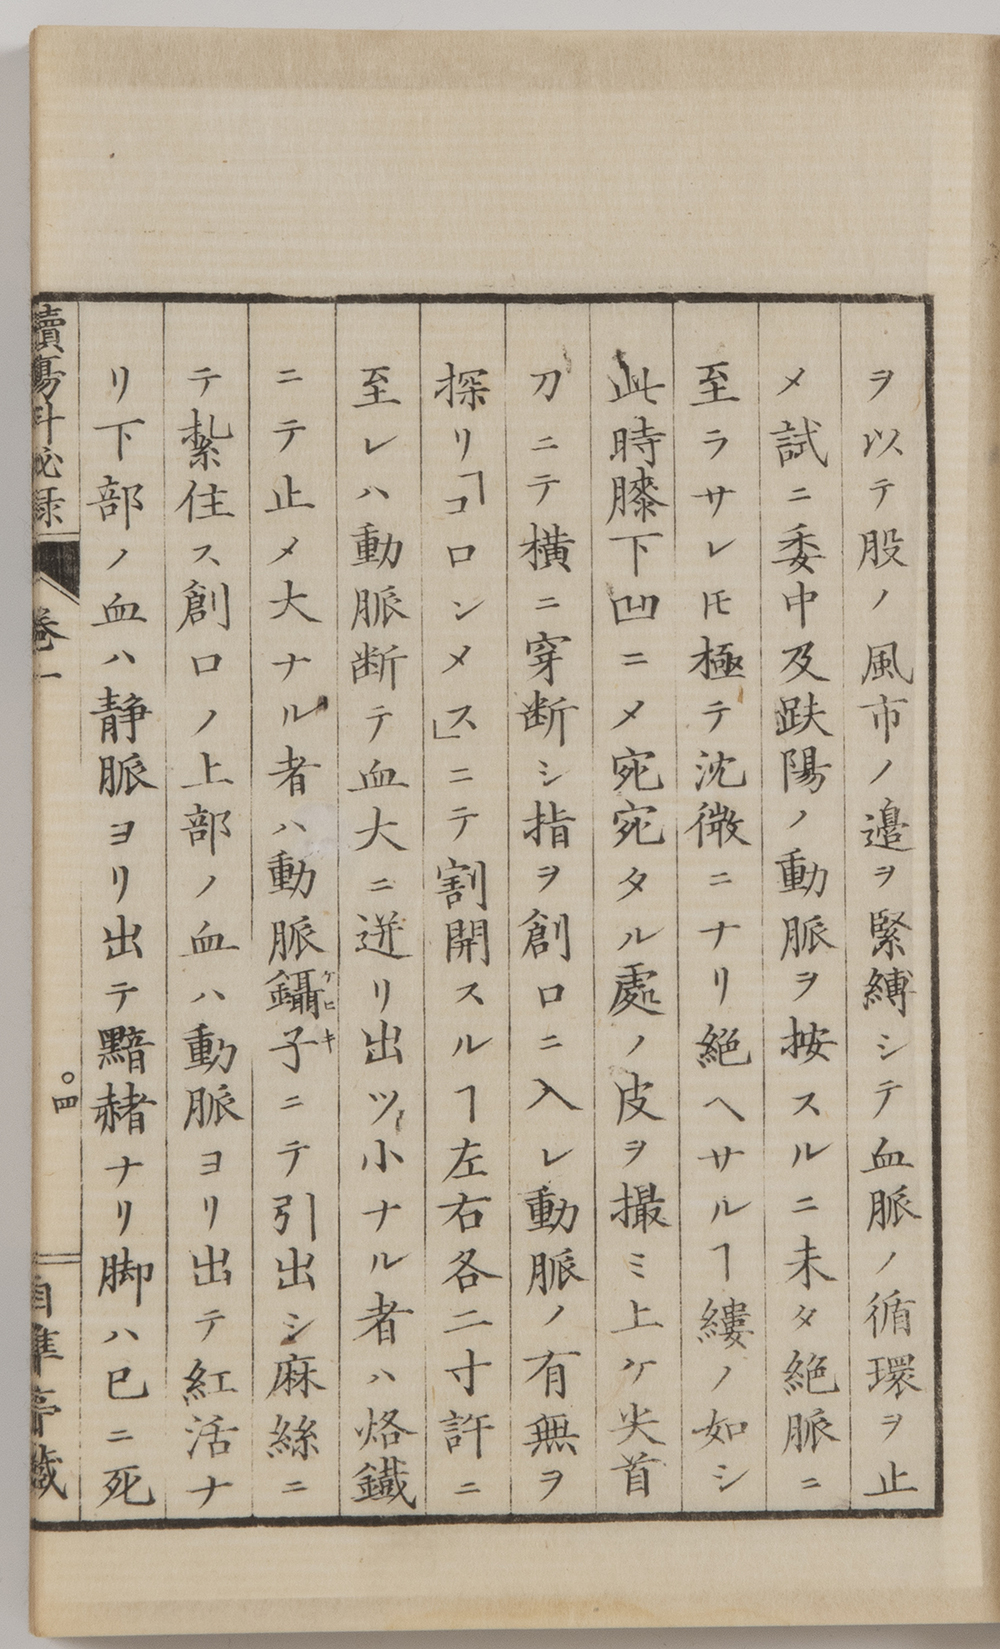 ヲ以テ股ノ風市ノ邉ヲ緊縛シテ血脈ノ循環ヲ止
メ試ニ委中及趺陽ノ動脈ヲ按スルニ未タ絶脈ニ
至ラサレ𪜈極テ沈微ニナリ絶ヘサルヿ縷ノ如シ
此時膝下凹ニメ宛宛タル處ノ皮ヲ撮ミ上ケ尖首
刀ニテ横ニ穿断シ指ヲ創口ニ入レ動脈ノ有無ヲ
探リ「コロンメス」ニテ割開スルヿ左右各二寸許ニ
至レハ動脈断テ血大ニ迸リ出ツ小ナル者ハ烙鐵
ニテ止メ大ナル者ハ動脈鑷子ケヒキニテ引出シ麻絲ニ
テ紮住ス創口ノ上部ノ血ハ動脈ヨリ出テ紅活ナ
リ下部ノ血ハ静脈ヨリ出テ黯赭ナリ脚ハ已ニ死
續瘍科秘録 卷一 〇四 自準亭藏